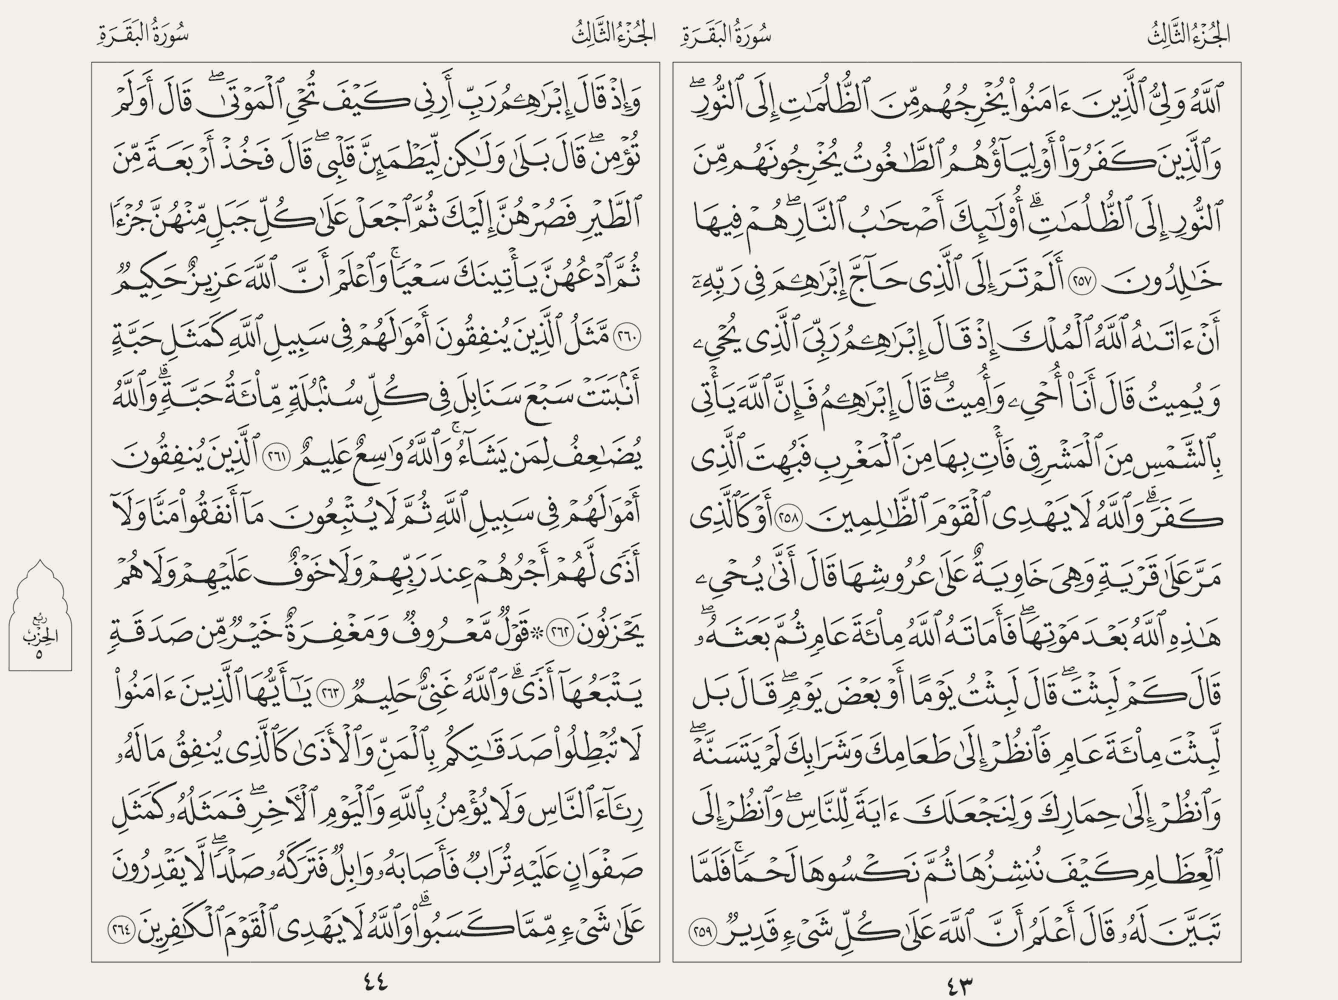 الجُزْءُ الثَّالِثُ
سُورَةُ البَقَرَةِ
ٱللَّهُ وَلِيُّ ٱلَّذِينَ ءَامَنُوا۟ يُخْرِجُهُم مِّنَ ٱلظُّلُمَٰتِ إِلَى ٱلنُّورِۖ
وَٱلَّذِينَ كَفَرُوٓا۟ أَوْلِيَآؤُهُمُ ٱلطَّٰغُوتُ يُخْرِجُونَهُم مِّنَ
ٱلنُّورِ إِلَى ٱلظُّلُمَٰتِۗ أُو۟لَٰٓئِكَ أَصْحَٰبُ ٱلنَّارِۖ هُمْ فِيهَا
خَٰلِدُونَ ٢٥٧ أَلَمْ تَرَ إِلَى ٱلَّذِى حَآجَّ إِبْرَٰهِـۧمَ فِى رَبِّهِۦٓ
أَنْ ءَاتَىٰهُ ٱللَّهُ ٱلْمُلْكَ إِذْ قَالَ إِبْرَٰهِـۧمُ رَبِّىَ ٱلَّذِى يُحْىِۦ
وَيُمِيتُ قَالَ أَنَا۠ أُحْىِۦ وَأُمِيتُۖ قَالَ إِبْرَٰهِـۧمُ فَإِنَّ ٱللَّهَ يَأْتِى
بِٱلشَّمْسِ مِنَ ٱلْمَشْرِقِ فَأْتِ بِهَا مِنَ ٱلْمَغْرِبِ فَبُهِتَ ٱلَّذِى
كَفَرَۗ وَٱللَّهُ لَا يَهْدِى ٱلْقَوْمَ ٱلظَّٰلِمِينَ ٢٥٨ أَوْ كَٱلَّذِى
مَرَّ عَلَىٰ قَرْيَةٍ وَهِىَ خَاوِيَةٌ عَلَىٰ عُرُوشِهَا قَالَ أَنَّىٰ يُحْىِۦ
هَٰذِهِ ٱللَّهُ بَعْدَ مَوْتِهَاۖ فَأَمَاتَهُ ٱللَّهُ مِا۟ئَةَ عَامٍ ثُمَّ بَعَثَهُۥۖ
قَالَ كَمْ لَبِثْتَۖ قَالَ لَبِثْتُ يَوْمًا أَوْ بَعْضَ يَوْمٍۖ قَالَ بَل
لَّبِثْتَ مِا۟ئَةَ عَامٍ فَٱنظُرْ إِلَىٰ طَعَامِكَ وَشَرَابِكَ لَمْ يَتَسَنَّهْۖ
وَٱنظُرْ إِلَىٰ حِمَارِكَ وَلِنَجْعَلَكَ ءَايَةً لِّلنَّاسِۖ وَٱنظُرْ إِلَى
ٱلْعِظَامِ كَيْفَ نُنشِزُهَا ثُمَّ نَكْسُوهَا لَحْمًاۚ فَلَمَّا
تَبَيَّنَ لَهُۥ قَالَ أَعْلَمُ أَنَّ ٱللَّهَ عَلَىٰ كُلِّ شَىْءٍ قَدِيرٌ ٢٥٩
٤٣
الجُزْءُ الثَّالِثُ
سُورَةُ البَقَرَةِ
وَإِذْ قَالَ إِبْرَٰهِـۧمُ رَبِّ أَرِنِى كَيْفَ تُحْىِ ٱلْمَوْتَىٰۖ قَالَ أَوَلَمْ
تُؤْمِنۖ قَالَ بَلَىٰ وَلَٰكِن لِّيَطْمَئِنَّ قَلْبِىۖ قَالَ فَخُذْ أَرْبَعَةً مِّنَ
ٱلطَّيْرِ فَصُرْهُنَّ إِلَيْكَ ثُمَّ ٱجْعَلْ عَلَىٰ كُلِّ جَبَلٍ مِّنْهُنَّ جُزْءًا
ثُمَّ ٱدْعُهُنَّ يَأْتِينَكَ سَعْيًاۚ وَٱعْلَمْ أَنَّ ٱللَّهَ عَزِيزٌ حَكِيمٌ
٢٦٠ مَّثَلُ ٱلَّذِينَ يُنفِقُونَ أَمْوَٰلَهُمْ فِى سَبِيلِ ٱللَّهِ كَمَثَلِ حَبَّةٍ
أَنۢبَتَتْ سَبْعَ سَنَابِلَ فِى كُلِّ سُنۢبُلَةٍ مِّا۟ئَةُ حَبَّةٍۗ وَٱللَّهُ
يُضَٰعِفُ لِمَن يَشَآءُۚ وَٱللَّهُ وَٰسِعٌ عَلِيمٌ ٢٦١ ٱلَّذِينَ يُنفِقُونَ
أَمْوَٰلَهُمْ فِى سَبِيلِ ٱللَّهِ ثُمَّ لَا يُتْبِعُونَ مَآ أَنفَقُوا۟ مَنًّا وَلَآ
أَذًى لَّهُمْ أَجْرُهُمْ عِندَ رَبِّهِمْ وَلَا خَوْفٌ عَلَيْهِمْ وَلَا هُمْ
يَحْزَنُونَ ٢٦٢ ۞ قَوْلٌ مَّعْرُوفٌ وَمَغْفِرَةٌ خَيْرٌ مِّن صَدَقَةٍ
يَتْبَعُهَآ أَذًىۗ وَٱللَّهُ غَنِىٌّ حَلِيمٌ ٢٦٣ يَٰٓأَيُّهَا ٱلَّذِينَ ءَامَنُوا۟
لَا تُبْطِلُوا۟ صَدَقَٰتِكُم بِٱلْمَنِّ وَٱلْأَذَىٰ كَٱلَّذِى يُنفِقُ مَالَهُۥ
رِئَآءَ ٱلنَّاسِ وَلَا يُؤْمِنُ بِٱللَّهِ وَٱلْيَوْمِ ٱلْءَاخِرِۖ فَمَثَلُهُۥ كَمَثَلِ
صَفْوَانٍ عَلَيْهِ تُرَابٌ فَأَصَابَهُۥ وَابِلٌ فَتَرَكَهُۥ صَلْدًاۖ لَّا يَقْدِرُونَ
عَلَىٰ شَىْءٍ مِّمَّا كَسَبُوا۟ۗ وَٱللَّهُ لَا يَهْدِى ٱلْقَوْمَ ٱلْكَٰفِرِينَ ٢٦٤
٤٤
ربع
الحزب
٥